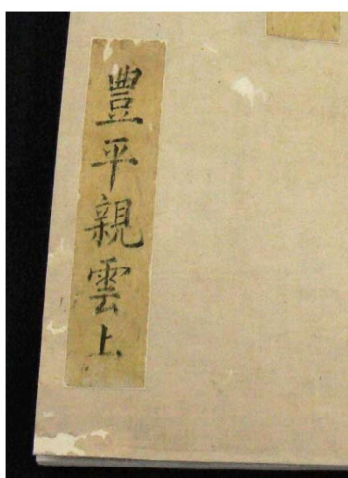 豊平親雲上